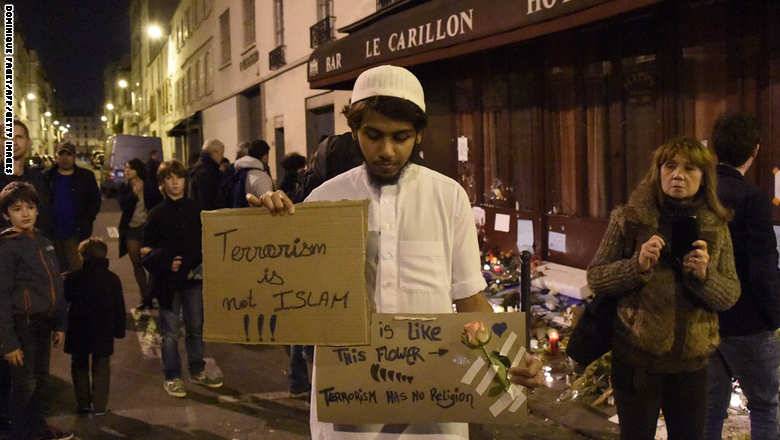 DOMINIQUE FAGET/AFP/GETTY IMAGES
LE CARILLON
BAR
Terrorism
is
not ISLAM
!!!
is Like
This Flower
Terrorism Has No Religion